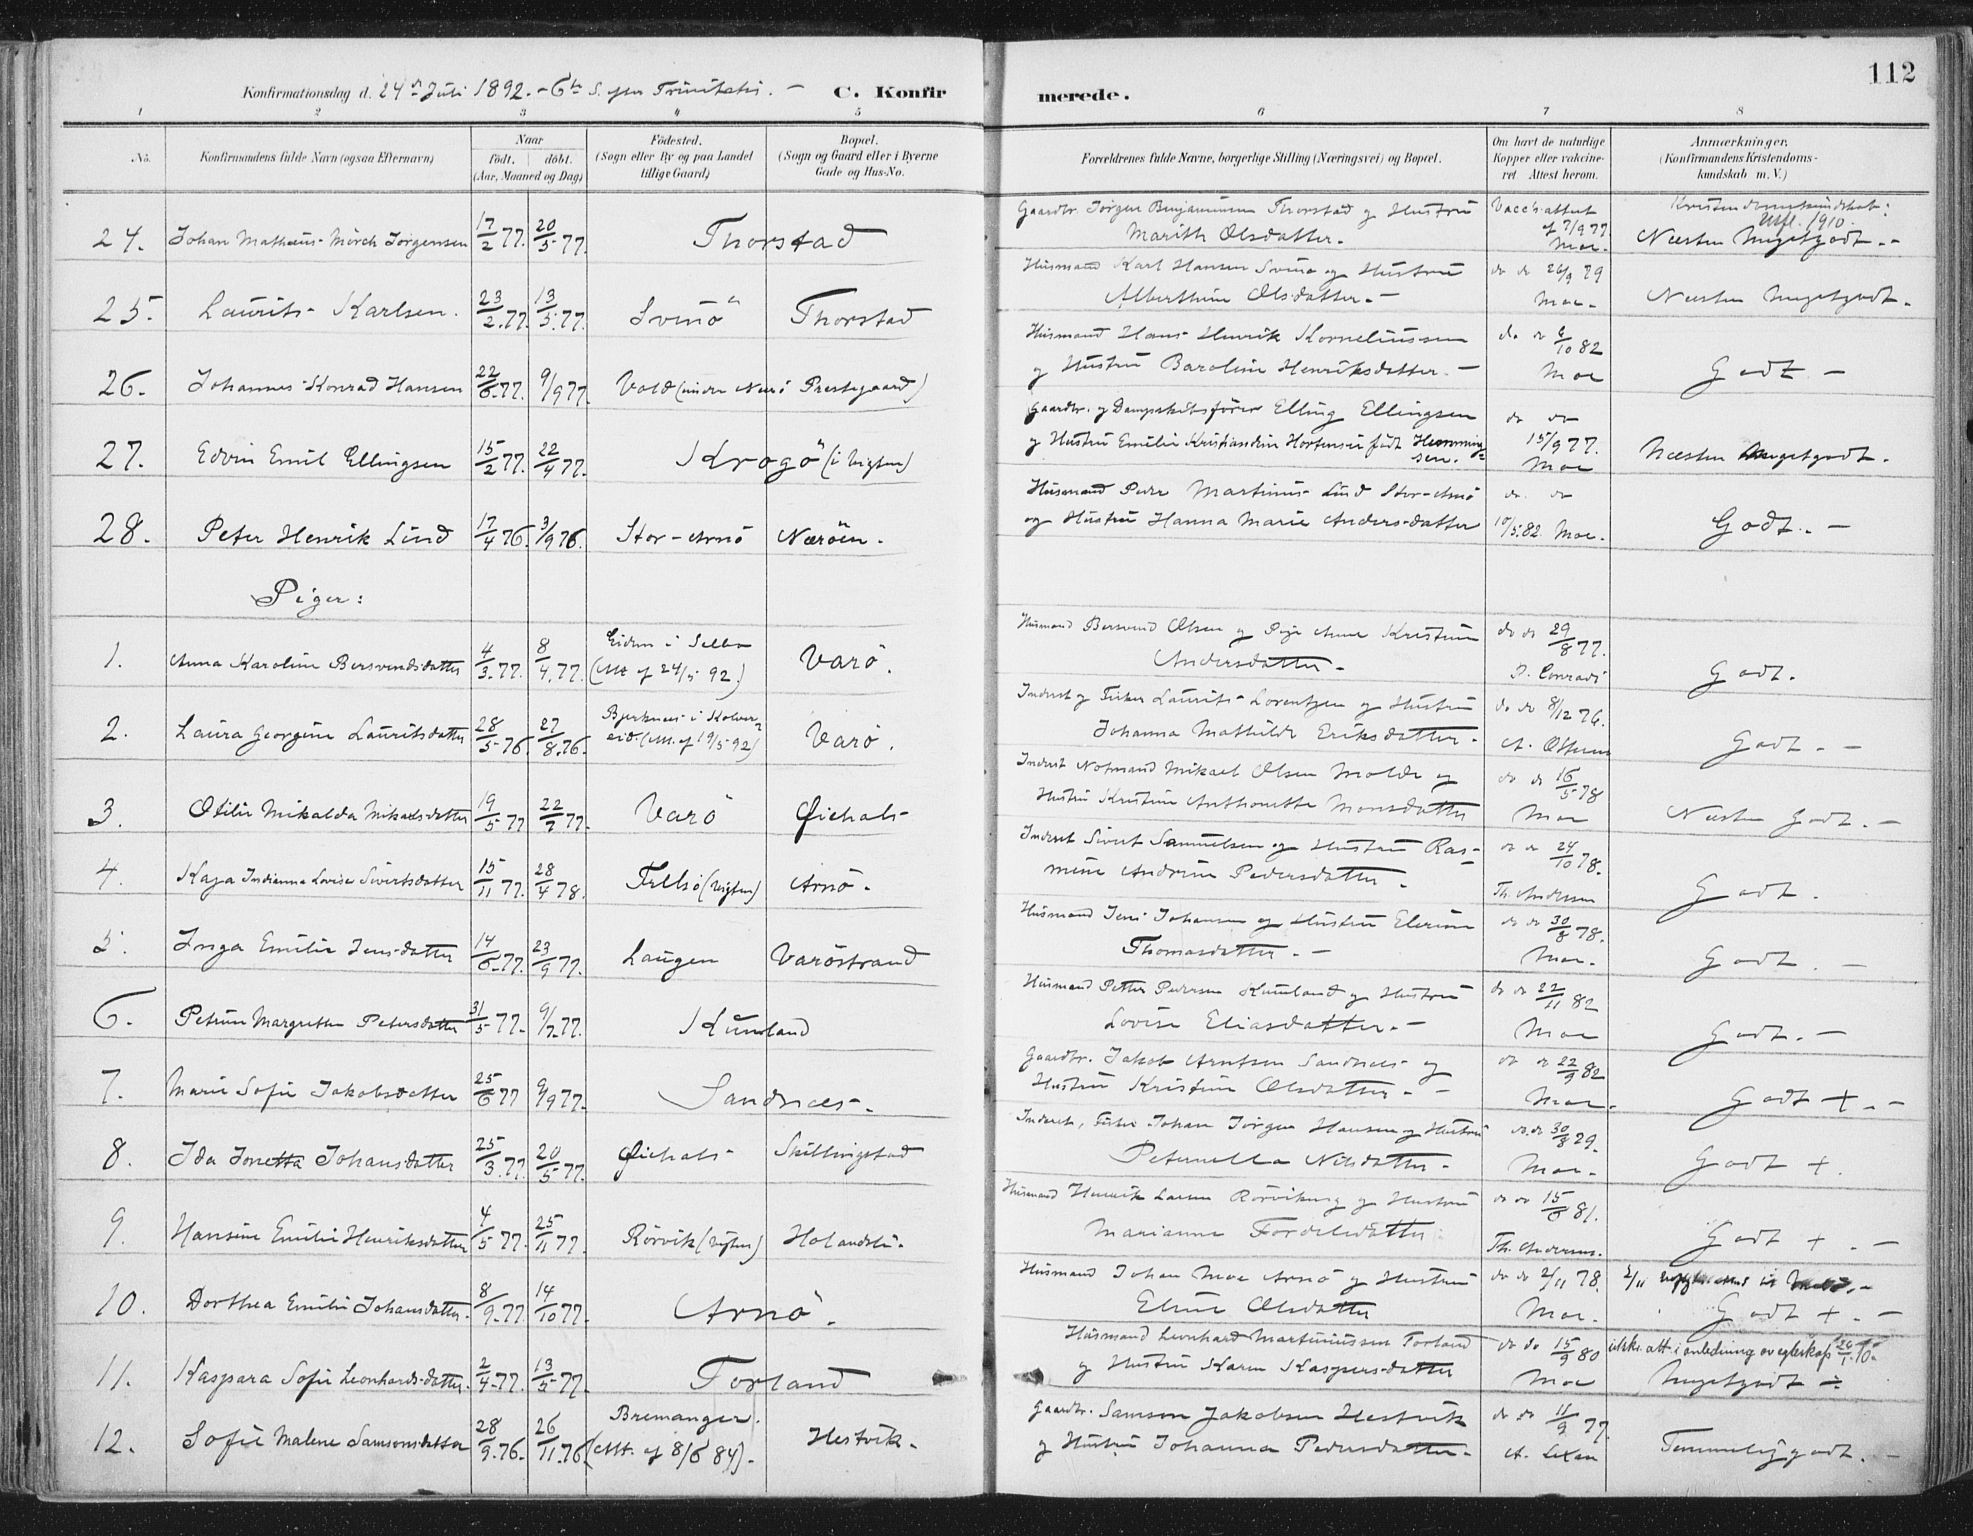 112
Konfirmationsdag d. 24de Juli 1892. - 6te S. efter Trinitatis. - C. Konfirmerede.
1 2 3 4 5 6 7 8
No. Konfirmandens fulde Navn (ogsaa Efternavn) Naar födt. döbt. (Aar, Maaned og Dag) Födested. (Sogn eller By og paa Landet tillige Gaard) Bopæl. (Sogn og Gaard eller i Byerne Gade og Hus-No. Forældrenes fulde Navne, borgerlige Stilling (Næringsvei) og Bopæl. Om havt de naturlige Kopper eller vaccineret Attest herom. Anmærkninger. (Konfirmandens Kristendomskundskab m. V.)
24. Johan Mathæus Mörch Jörgensen 17/2 77. 20/5 77. Thorstad Gaardbr. Jörgen Benjaminsen Thorstad og Hustru Marith Olsdatter. Vacc's attest af 7/9 77 Moe. Kristendomskundskab: Utfl. 1910. Næsten Megetgodt. -
25. Laurits Karlsen. 23/2 77. 13/5 77. Svinö Thorstad Husmand Karl Hansen Svinö og Hustru Alberthine Olsdatter. - do do 26/9 79 Moe. Næsten Megetgodt.
26. Johannes Konrad Hansen 22/6 77. 9/9 77. Vold (under Nærö Prestegaard) Husmand Hans Henrik Korneliussen og Hustru Baroline Henriksdatter. - do do 6/10 82 Moe Godt -
27. Edvin Emil Ellingsen 15/2 77. 22/4 77. Krogö (i Vigten) Gaardbr. og Dampskibsförer Elling Ellingsen og Hustru Emilie Kristiandine Hortensie født Hemmingsen. do do 15/9 77. Moe Næsten Megetgodt.
28. Peter Henrik Lind 17/4 76. 3/9 76. Stor-Arnö Næröen. Husmand Peder Martinus Lind Stor-Arnö og Hustru Hanna Marie Andersdatter do do 10/5 82 Moe. Godt. -
Piger:
1. Anna Karoline Bersvendsdatter 4/3 77. 8/4 77. Eidem i Selbo (Att af 24/5 92.) Varö. Husmand Bersvend Olsen og Pige Anne Kristine Andersdatter - do do 29/8 77. P. Conradi Godt.
2. Laura Georgine Lauritsdatter 28/5 76. 27/8 76. Bjerknes i Kolvereid. (Att. af 19/5 92) Varö. Inderst og Fisker Laurits Lorentzen og Hustru Johanna Mathilde Eriksdatter. do do 8/12 76. Godt. -
3. Otilie Mikalda Mikaelsdatter 19/5 77 22/7 77. Varö Øiehals Inderst Notmand Mikael Olsen Molde og Hustru Kristine Anthonette Monsdatter do do 16/5 78 Moe Næsten Godt. -
4. Kaja Indianna Lovise Sivertsdatter 15/11 77. 28/4 78. (Vigten) Arnö. Inderst Sivert Samuelsen og Hustru Rasmine Andrine Pedersdatter. do do 24/10 78. Th. Andersen Godt.
5. Inga Emilie Jensdatter 14/6 77. 23/9 77. Laugen Varöstrand Husmand Jens Johansen og Hustru Thomasdatter. - do do 30/8 78. Moe. Godt. -
6. Petrine Margrethe Petersdatter 31/5 77. 9/7 77. Kumland Husmand Petter Pedersen Kumland og Hustru Lovise Eliasdatter. - do do 22/11 82 Moe Godt. -
7. Marie Sofie Jakobsdatter 25/6 77 9/9 77. Sandnæs. Gaardbr. Jakob Arntsen Sandnæs og Hustru Kristine Olsdatter. - do do 22/9 82 Moe. Godt +. -
8. Ida Jonetta Johansdatter 25/3 77. 20/5 77. Øiehals Skillingstad Inderst, Fisker Johan Jörgen Hansen og Hustru Peternella Nilsdatter. do. do 30/8 79. Moe. Godt +.
9. Hansine Emilie Henriksdatter 4/5 77. 25/11 77. Rörvik (Vigten) Husmand Henrik Larsen og Hustru Marianne do do 15/6 81. Th. Andersen. Godt +. -
10. Dorthea Emilie Johansdatter. 8/9 77. 14/10 77. Arnö. Husmand Johan Moe Arnö og Hustru Eline Olsdatter do do 2/11 78. Moe. Godt +. -
11. Kaspara Sofie Leonhardsdatter. 2/4 77. 13/5 77. Forland Husmand Leonhard Martiniussen Forland og Hustru Karen Kaspersdatter do do 15/9 80 Moe utskr. att. i anledning av egteskap 26/1 10. Megetgodt ÷
12. Sofie Malene Samsonsdatter 28/9 76. 26/11 76 Bremanger. (Att. af 8/6 84). Hestvik. Gaardbr. Samson Jakobsen Hestvik og Hustru Johanna Pedersdatter. do do 11/9 77. Temmelig godt. -